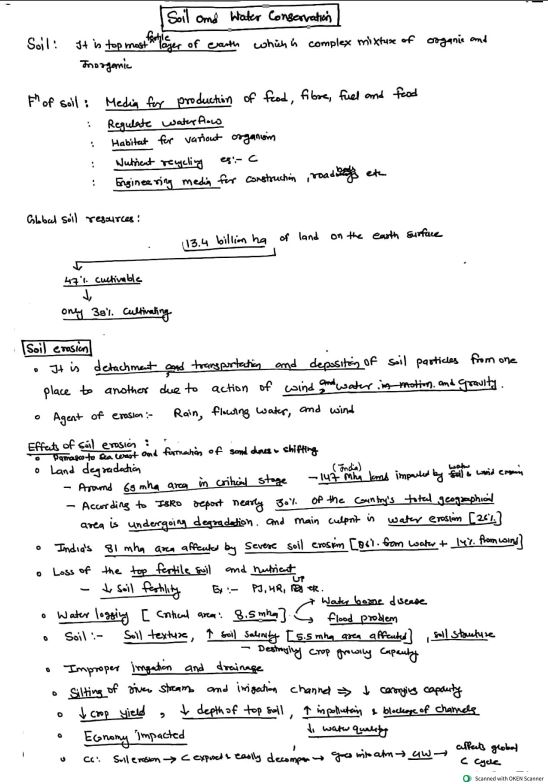 Soil and Water Conservation
Soil: It is top most fertile layer of earth which is complex mixture of organic and
Inorganic
Fⁿ of soil : Media for production of feed, fibre, fuel and food
: Regulate waterflow
: Habitat for various organism
: Nutrient recycling eg:- C
: Engineering media for construction, road etc
Global soil resources:
13.4 billion ha of land on the earth surface
↓
47% cultivable
↓
only 38% cultivating
Soil erosion
• It is detachment and transportation and deposition of soil particles from one
place to another due to action of wind and water in motion and gravity.
o Agent of erosion:- Rain, flowing water, and wind
Effects of soil erosion :
• Damages to sea coast and formation of sand dunes & shifting
o Land degradation
- Around 69 mha area in critical stage - 147 Mha land (India) impacted by water & wind erosion
- According to ISRO report nearly 30% of the country's total geographical
area is undergoing degradation. and main culprit is water erosion [26%]
o India's 81 mha area affected by severe soil erosion [86% from water + 14% from wind]
o Loss of the top fertile soil and nutrient
- ↓ Soil fertility Ex:- PJ, HR, UP etc.
o Water logging [Critical area: 8.5 mha] → Water borne disease
→ flood problem
• Soil:- Soil texture, ↑ soil salinity [5.5 mha area affected], soil structure
- Destroying crop growing capacity
o Improper irrigation and drainage
o Silting of river streams and irrigation channel ⇒ ↓ carrying capacity
o ↓ crop yield, ↓ depth of top soil, ↑ in pollution & blockage of channels
o Economy impacted ↓ water quality
o CC: Soil erosion → C exposed & easily decompose → goes into atm → GW → affects global
C cycle
Scanned with OKEN Scanner